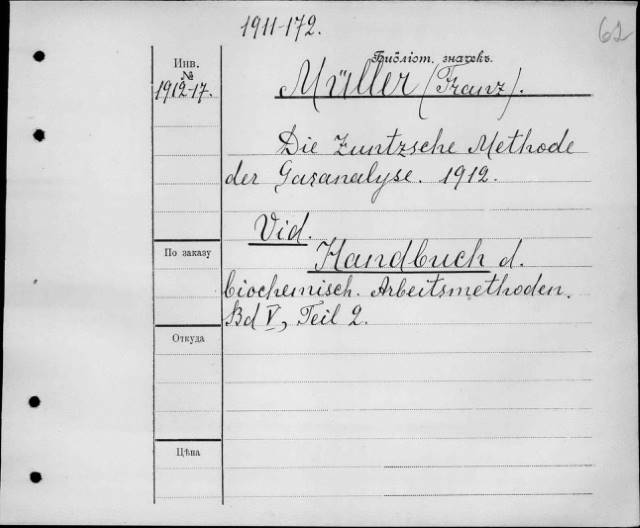 1911-172.
62
Инв.
№
1912-17.
Библіот. значекъ.
Müller (Franz).
Die Zuntzsche Methode
der Gasanalyse. 1912.
Vid.
Handbuch d.
biochemisch. Arbeitsmethoden.
Bd V, Teil 2.
По заказу
Откуда
Цѣна